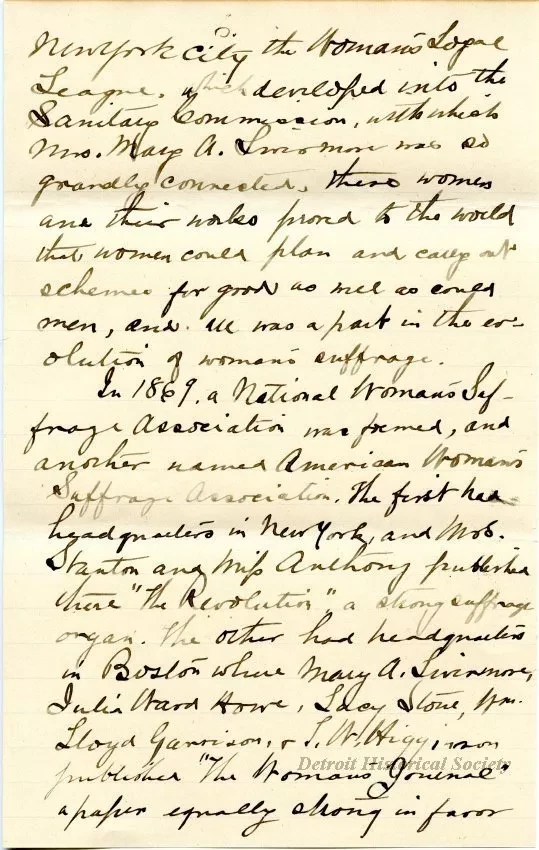 New York City the Woman's Loyal
League, which developed into the
Sanitary Commission, with which
Mrs. Mary A. Livermore was so
grandly connected, these women
and their works proved to the world
that women could plan and carry out
schemes for good as well as could
men, and all was a part in the ev-
olution of woman's suffrage.
In 1869, a National Woman's Suf-
frage Association was formed, and
another named American Woman's
Suffrage Association. The first had
headquarters in New York, and Mrs.
Stanton and Miss Anthony published
there "The Revolution", a strong suffrage
organ. The other had headquarters
in Boston where Mary A. Livermore,
Julia Ward Howe, Lucy Stone, Wm.
Lloyd Garrison, & T. W. Higginson
published "The Woman's Journal"
a paper equally strong in favor
Detroit Historical Society